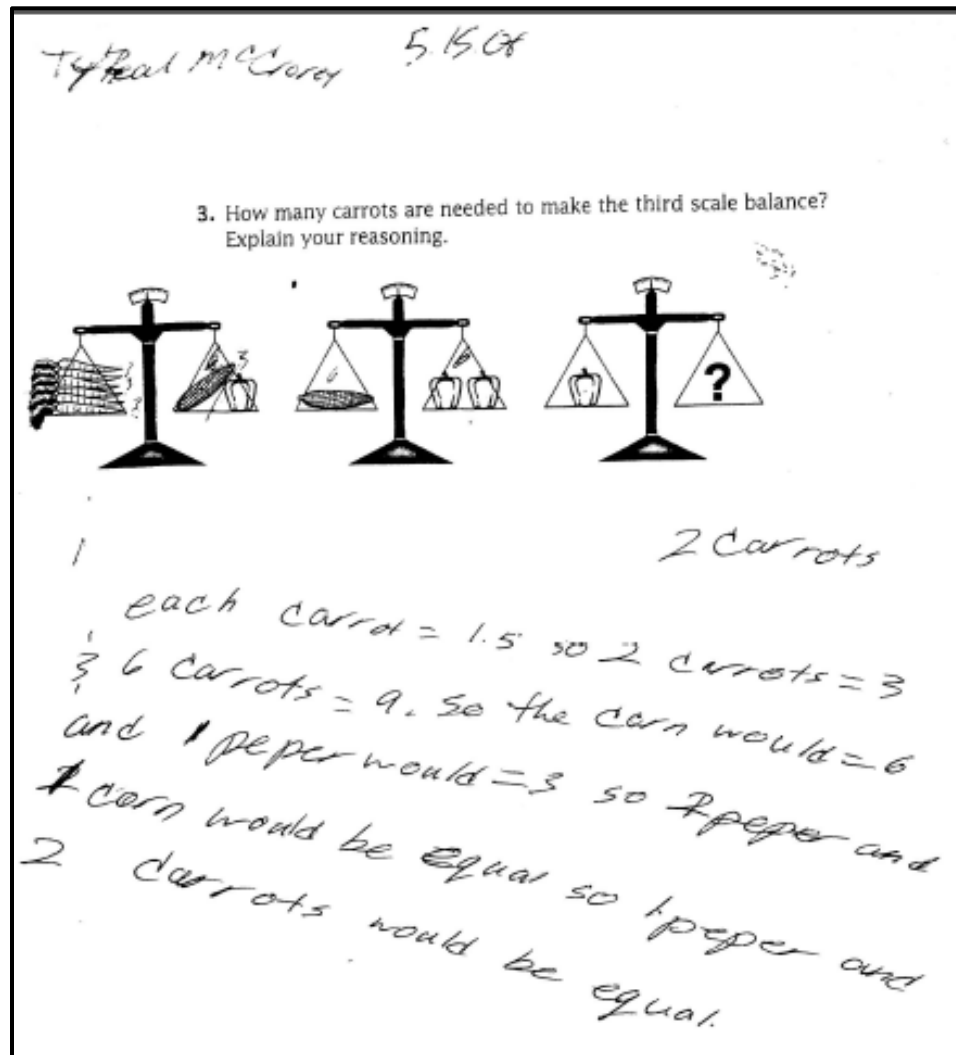 5.15
3. How many carrots are needed to make the third scale balance?
Explain your reasoning.
6 3
6 6
?
2 Carrots
each carrot = 1.5 so 2 carrots = 3
6 carrots = 9. So the corn would = 6
and 1 peper would = 3 so peper and
corn would be equal so 1 peper and
2 carrots would be equal.